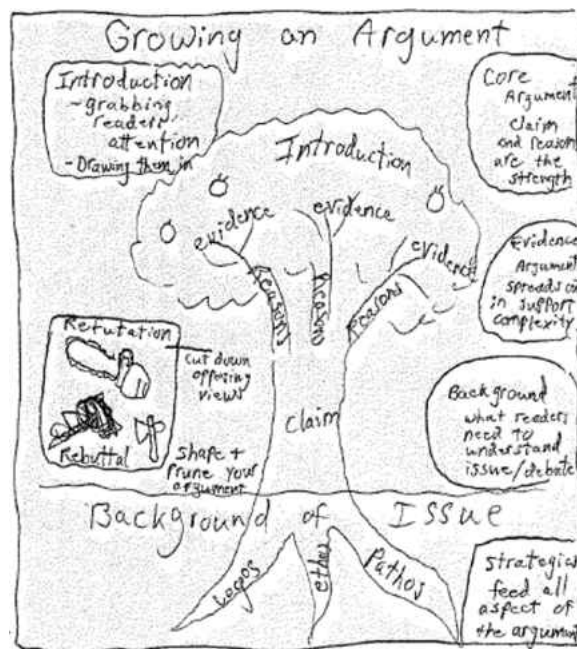 Growing an Argument
Introduction
- grabbing
readers'
attention
- Drawing them in
Core
Argument
claim
and reason
are the
strength
Introduction
evidence
evidence
evidence
Reasons
Reasons
Reasons
Evidence
Argument
spreads
in support
complexity
Refutation
cut down
opposing
views
Rebuttal
Shape +
Prune your
argument
claim
Background
what readers
need to
understand
issue/debate
Background of Issue
Logos
ethos
Pathos
Strategies
feed all
aspect of
the argument